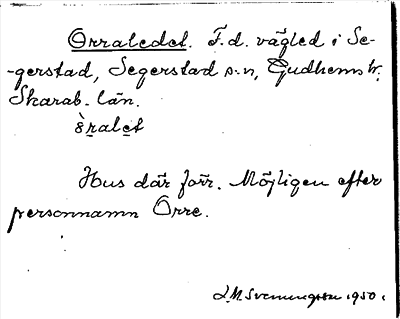 Orraledet. F.d. vägled i Se-
-gerstad, Segerstad s:n, Gudhems hr.
Skarab. län.
òralet
Hus där förr. Möjligen efter
personnamn Orre.
J.M. Svenungsson 1950.